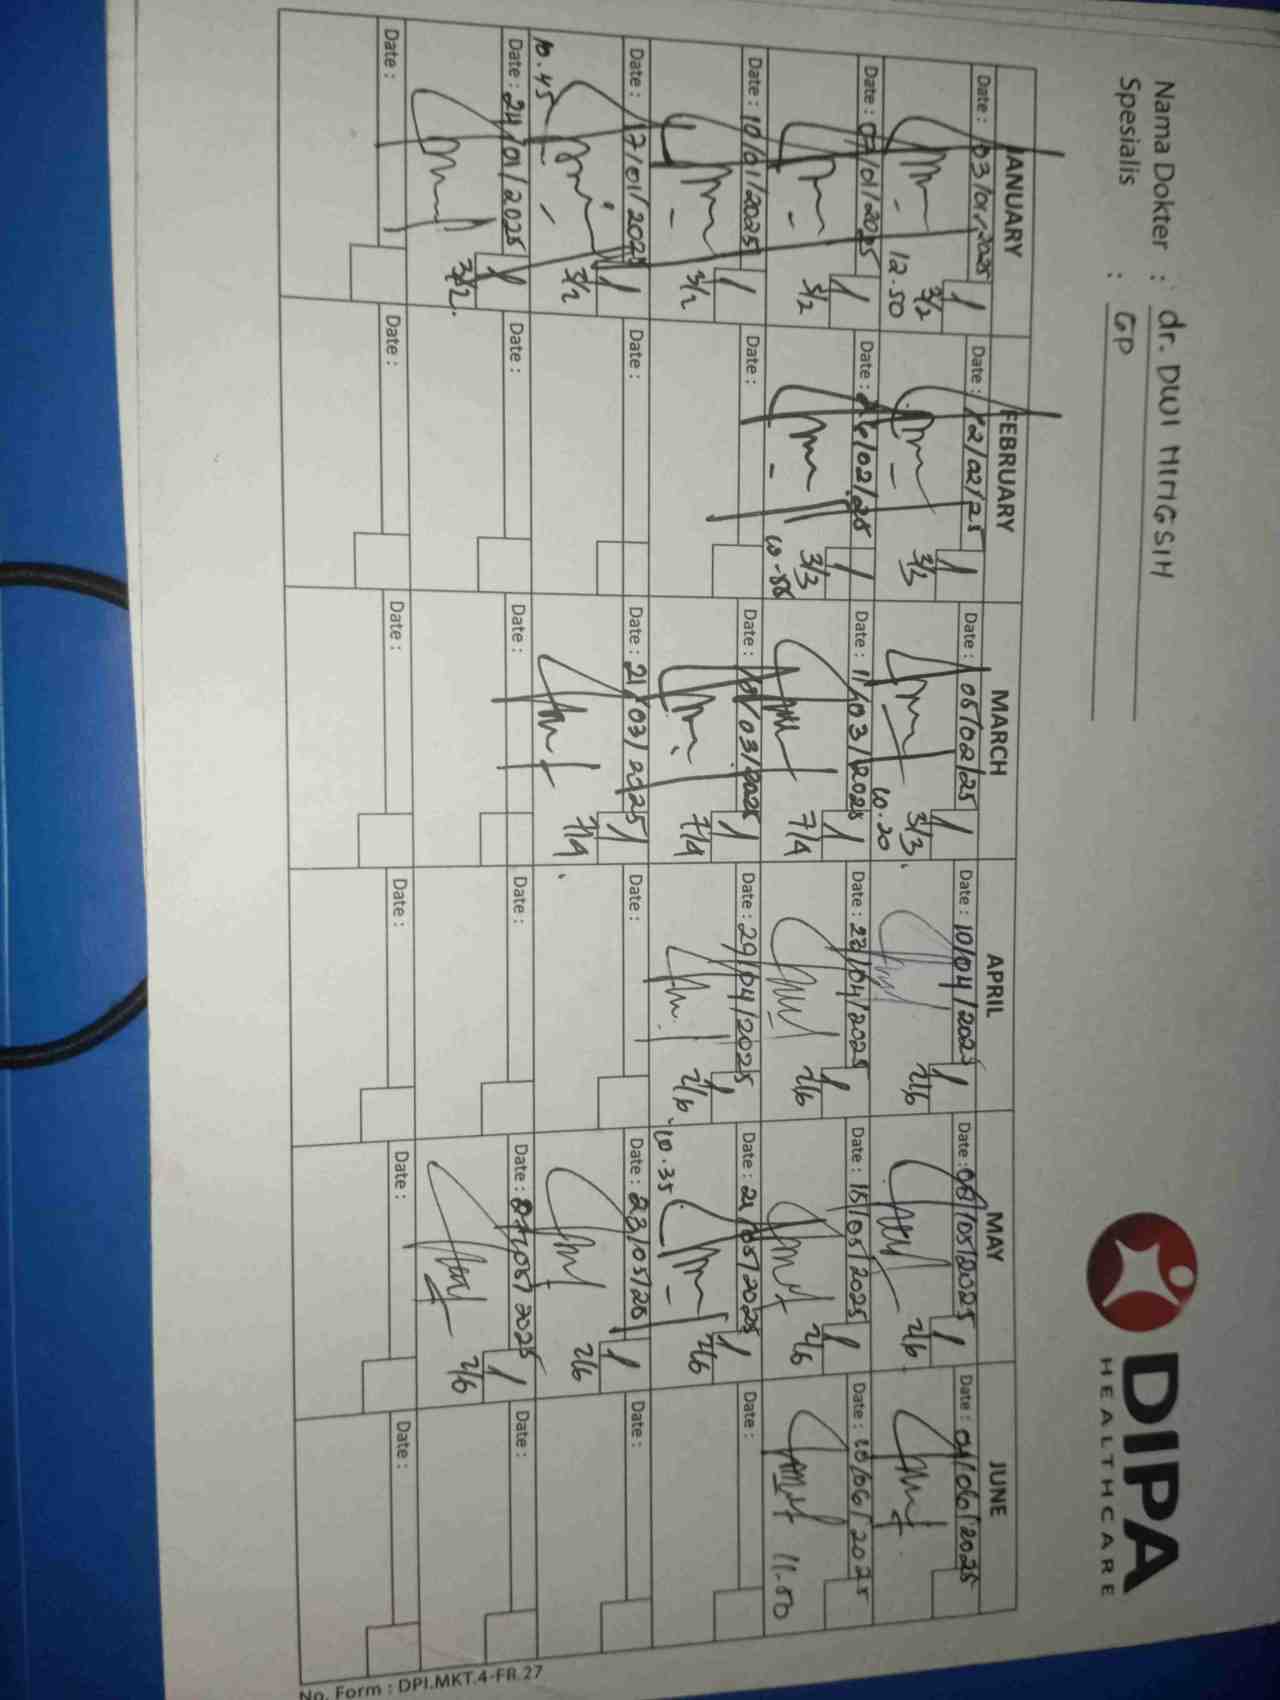 Nama Dokter : dr. DWI NINGSIH
Spesialis : GP
DIPA
HEALTHCARE
JANUARY FEBRUARY MARCH APRIL MAY JUNE
Date : 03/01/2025 1 Date : 12/02/25 1 Date : 05/02/25 1 Date : 10/04/2025 1 Date : 08/05/2025 1 Date : 04/06/2025
12.50 3/2 3/3 3/3. 2/6 2/6
10.20
Date : 07/01/2025 1 Date : 26/02/25 1 Date : 11/03/2025 1 Date : 22/04/2025 1 Date : 15/05/2025 1 Date : 10/06/2025
3/2 3/3 7/4 2/6 2/6 11.50
Date : 10/01/2025 1 Date : Date : 18/03/2025 1 Date : 29/04/2025 1 Date : 21/05/2025 1 Date :
3/2 7/4 2/6 10.35 2/6
Date : 17/01/2025 1 Date : Date : 21/03/2025 1 Date : Date : 23/05/25 1 Date :
10.45 3/2 7/4 2/6
Date : 24/01/2025 1 Date : Date : Date : Date : 1 Date :
3/2. 2/6
Date : Date : Date : Date : Date : Date :
No. Form : DPI.MKT.4-FR.27